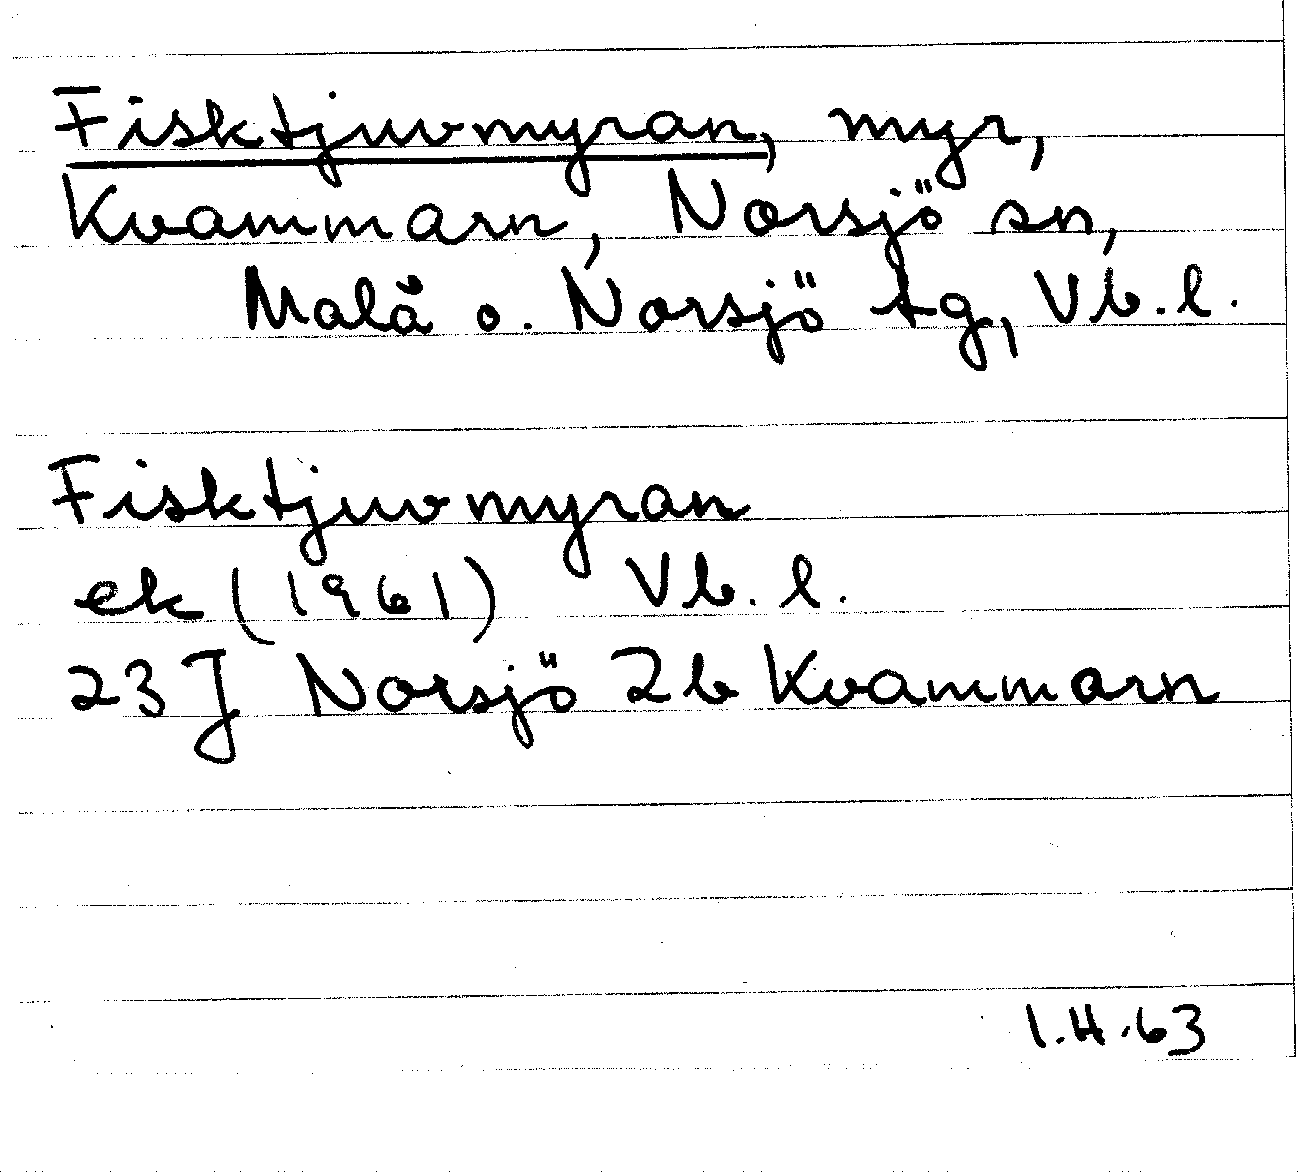 Fisktjuvmyran, myr,
Kvammarn, Norsjö sn,
Malå o. Norsjö tg, Vb.l.
Fisktjuvmyran
ek (1961) Vb.l.
23 J Norsjö 2b Kvammarn
I.H.63